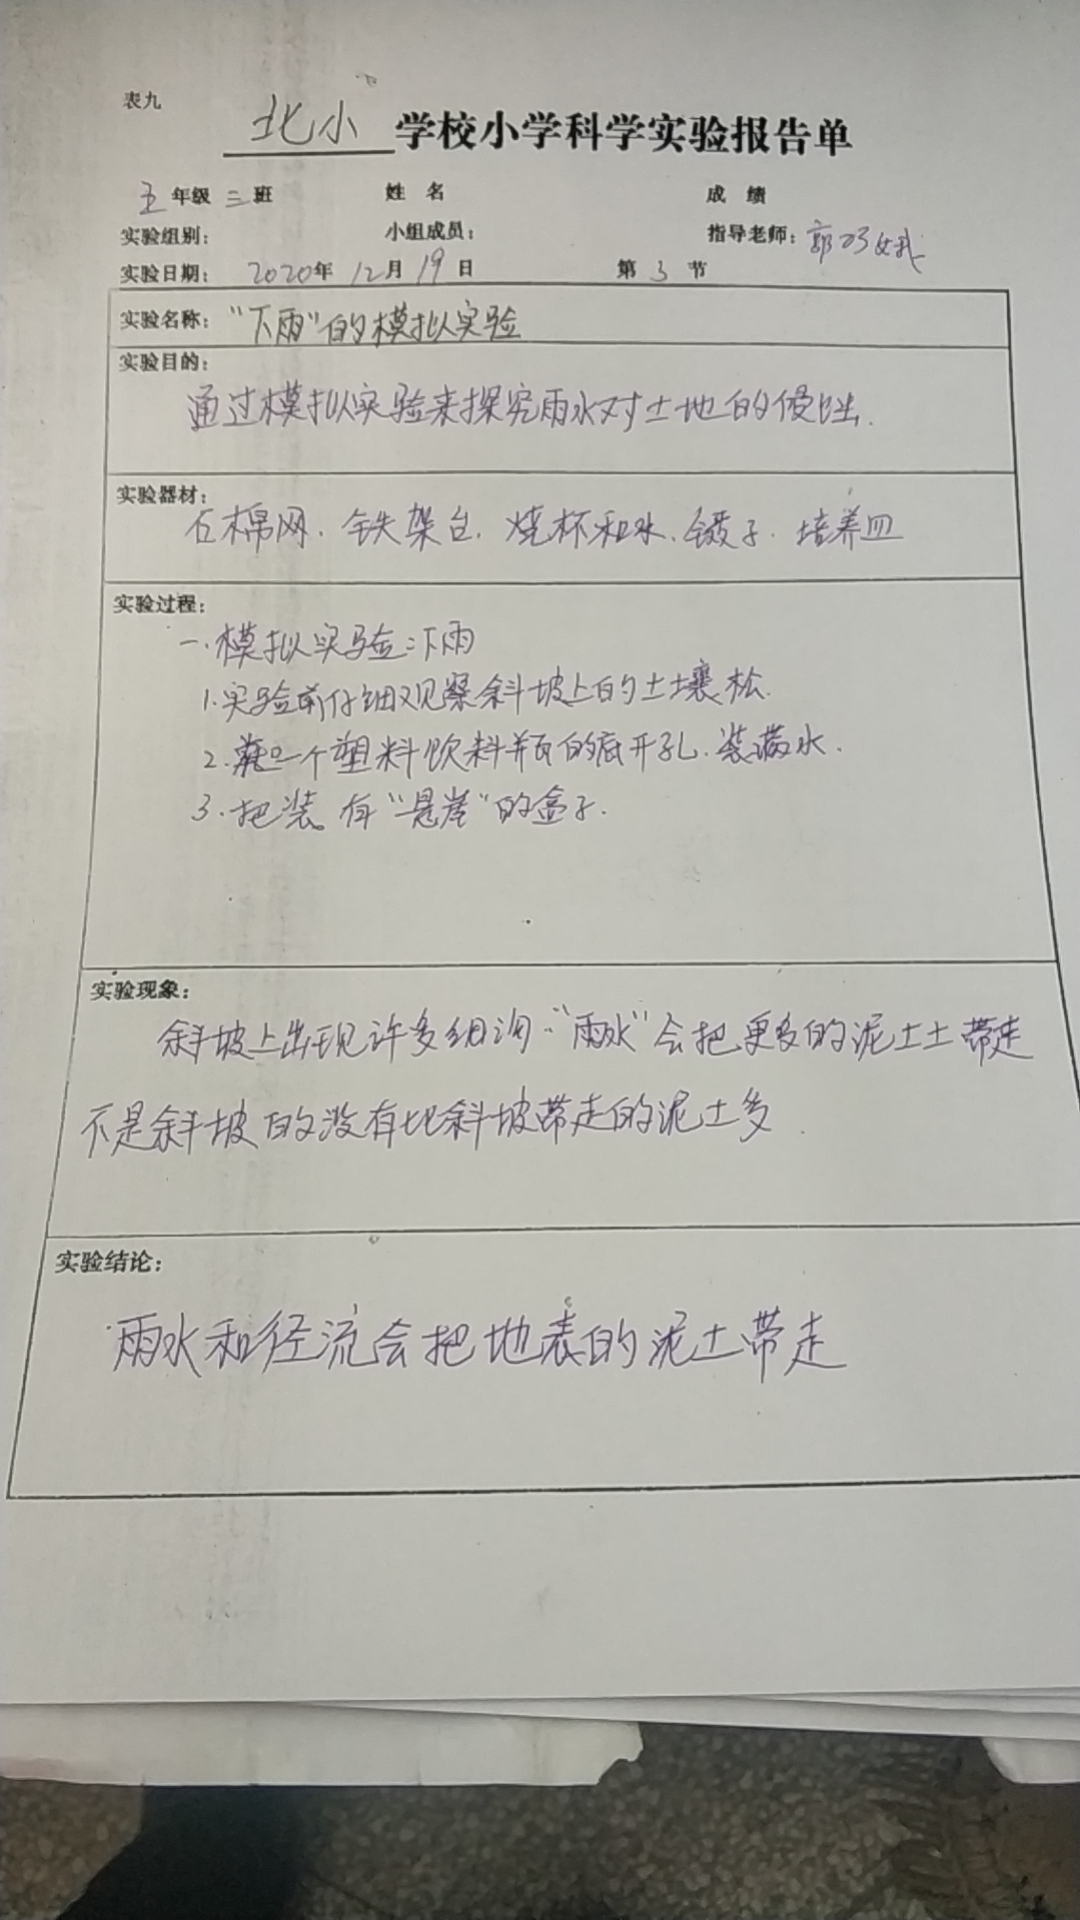 表九
北小学校小学科学实验报告单
五年级三班 姓名 成绩
实验组别: 小组成员: 指导老师:郭巧
实验日期: 2020年12月19日 第3节
实验名称:“下雨”的模拟实验
实验目的:
通过模拟实验来探究雨水对土地的侵蚀.
实验器材:
石棉网.铁架台.烧杯和水.镊子.培养皿
实验过程:
一.模拟实验:下雨
1.实验前仔细观察斜坡上的土壤松.
2.一个塑料饮料瓶的底开孔.装满水.
3.把装有“悬崖”的盒子.
实验现象:
斜坡上出现许多细沟.“雨水”会把更多的泥土土带走
不是斜坡的没有比斜坡带走的泥土多
实验结论:
雨水和径流会把地表的泥土带走